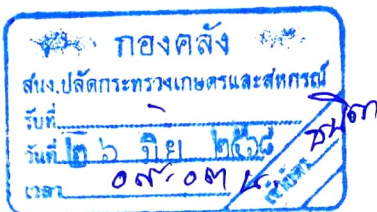 กองคลัง
สนง.ปลัดกระทรวงเกษตรและสหกรณ์
รับที่
วันที่ ๒๖ มิย ๒๕๖๘
เวลา ๐๙.๐๓ น.